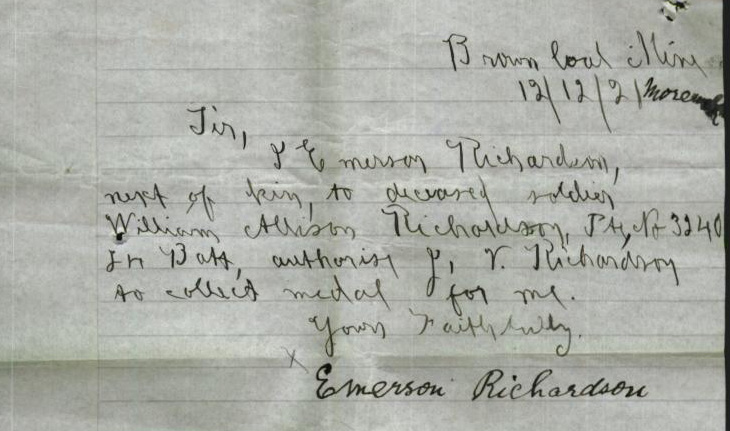 Brown Coal Mine
12/12/21 Morewell
Sir,
I Emerson Richardson,
next of kin, to deceased soldier
William Allison Richardson, Pte, No 3240
Batt, authorise J, V. Richardson
to collect medal for me.
Yours Faithfully.
x
Emerson Richardson